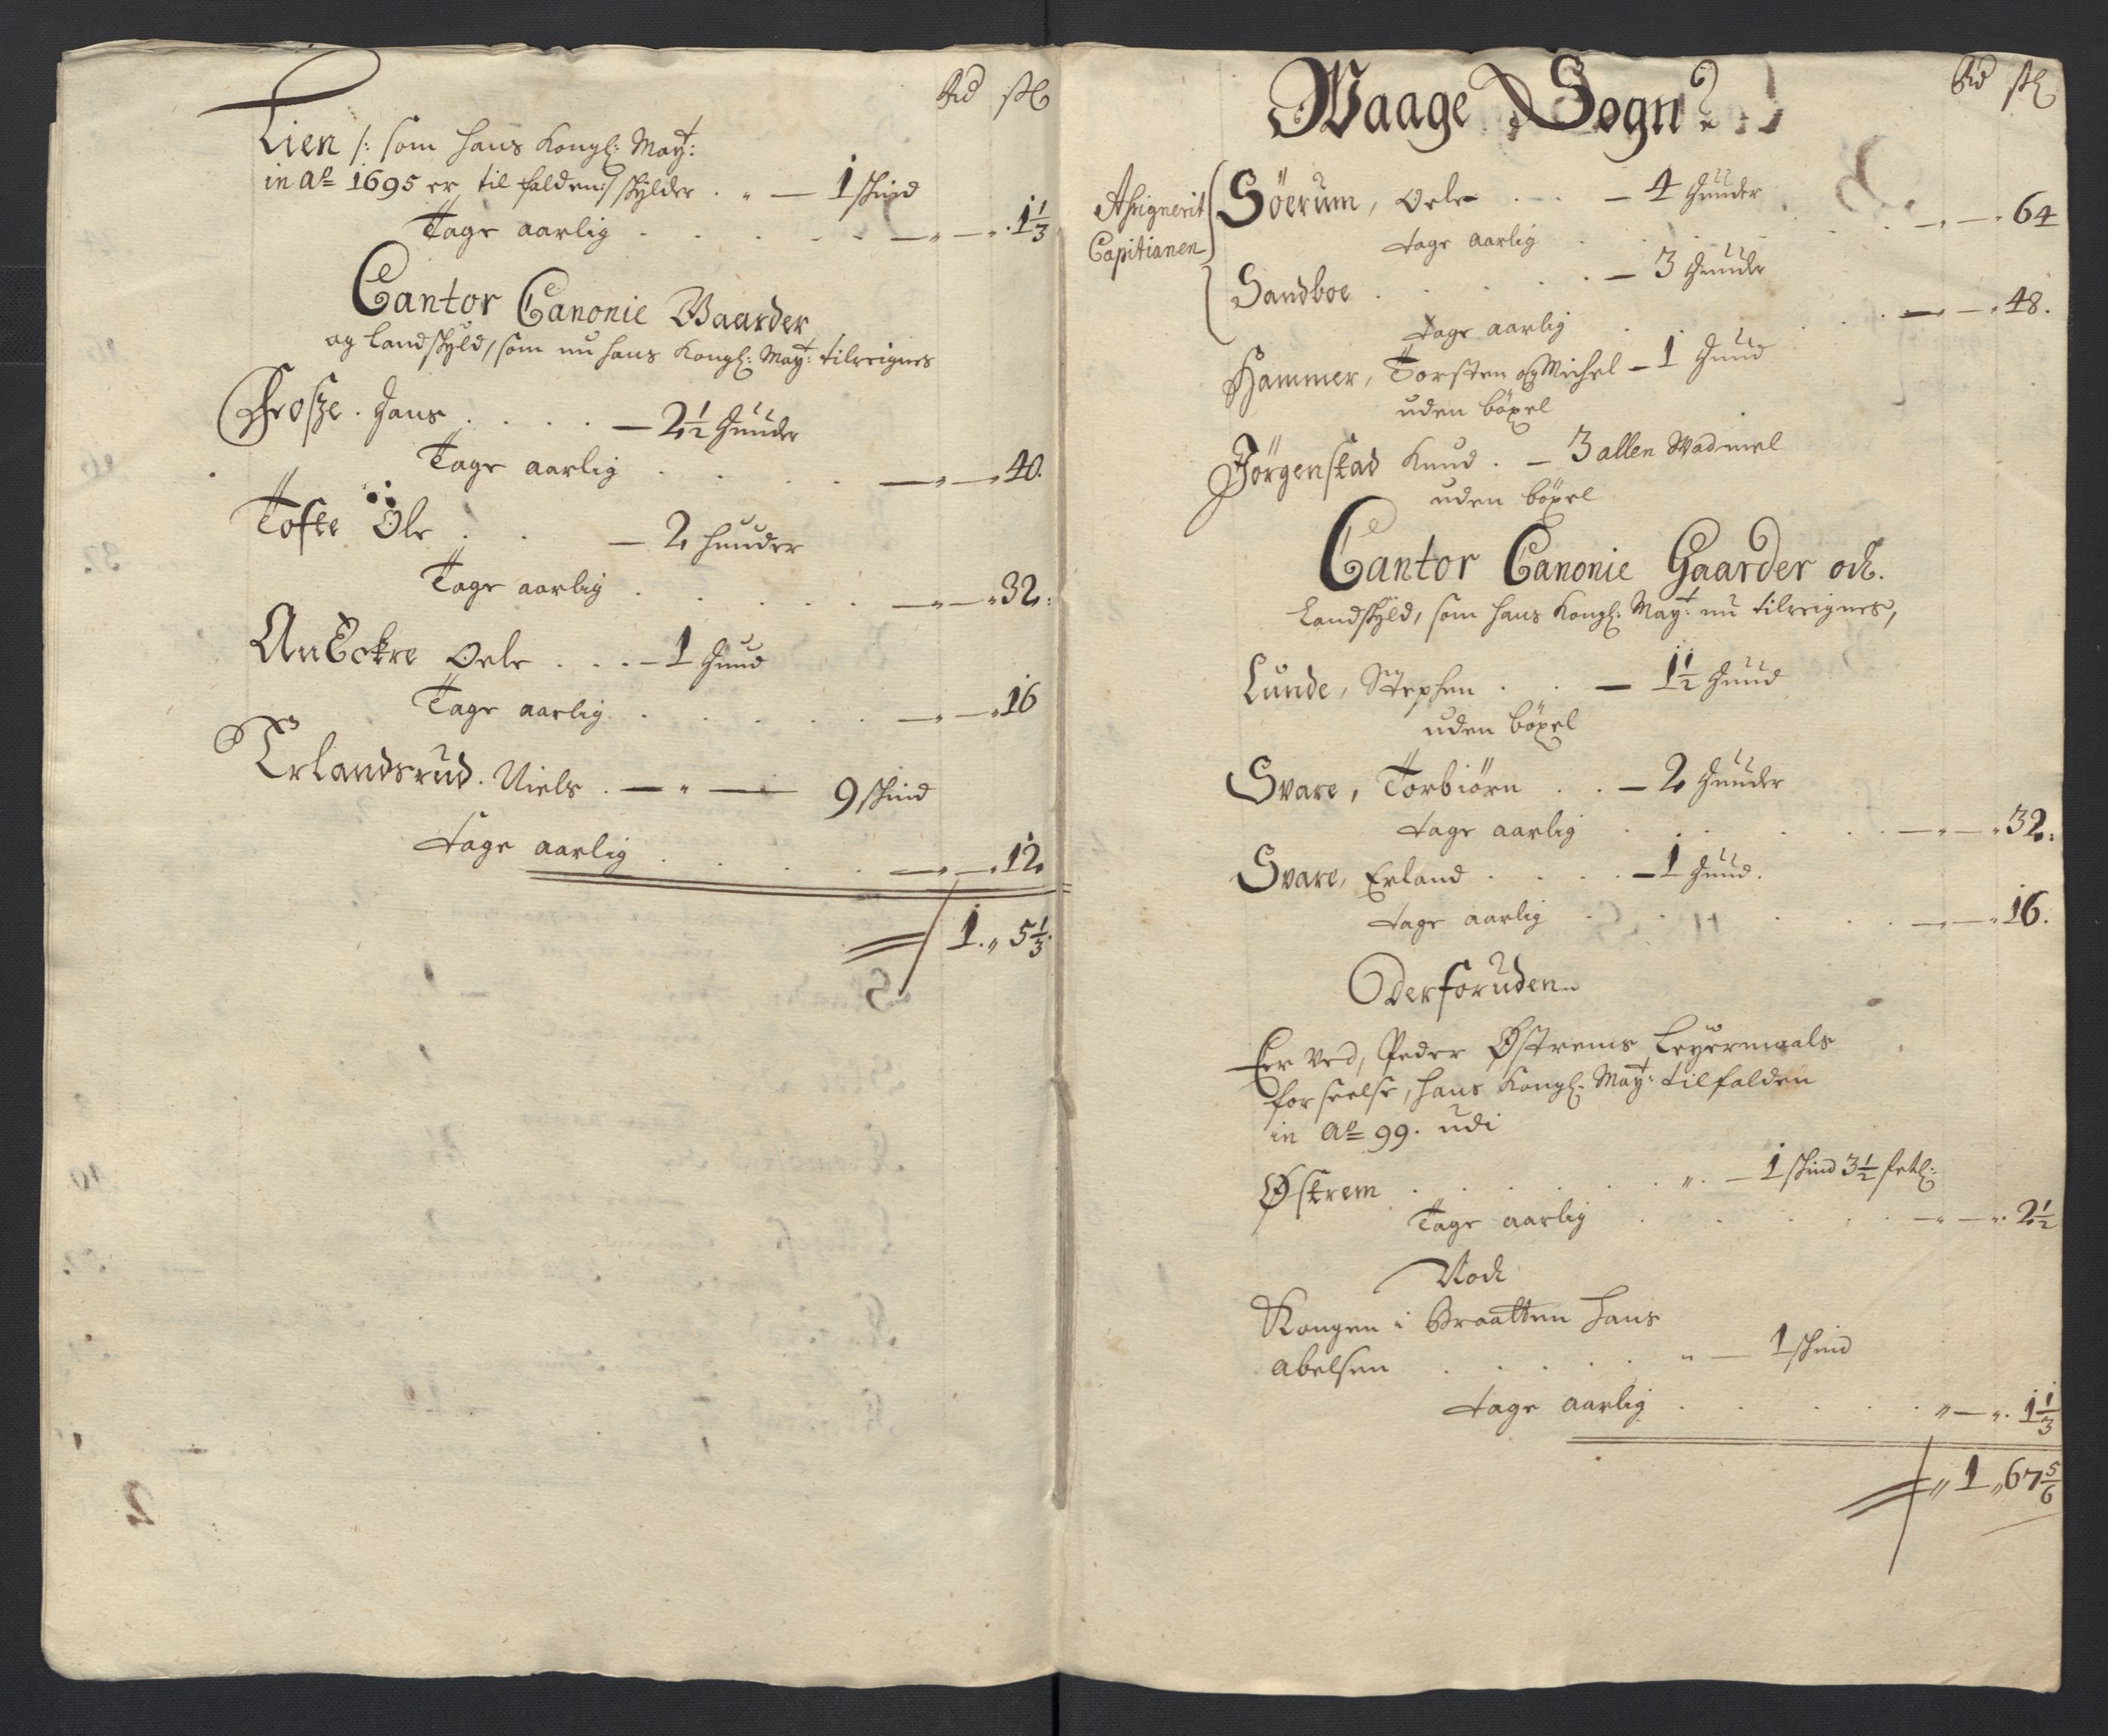 Rd ſk
Lien /: som hans Kongl: May:
in Aº 1695 er til falden :/ skylder . „ — 1 skind
Tage aarlig . . . . . — „ — „ 1 1/3
Cantor Canonie Gaarder
og Landskyld, som nu hans Kongl: May: tilreignes
Frosze . Hans . . . . — 2 1/2 Huuder
Tage aarlig . . . . — „ — „ 40.
Tofte Ole . . — 2 huuder
Tage aarlig . . . . . — „ — „ 32:
Oele . . . — 1 Huud
Tage aarlig . . . . . — „ — „ 16
Erlandsrud . Niels . — „ — 9 skind
tage aarlig . . . — „ — „ 12
1 „ 5 1/3.
Waage Sogn
Rd ſk
Asignerit
Capitianen
Söerum, Oele . . . — 4 Huuder
tage aarlig . . . . — „ — „ 64
Sandboe . . . . . — 3 Huuder
tage aarlig . . . . — „ — „ 48.
Hammer, Torsten og Michel — 1 Huud
uden böxel
Jörgenstad Knud . — 3 allen Wadmel
uden böxel
Cantor Canonie Gaarder och
Landskyld, som hans Kongl: May: nu tilreignes,
Lunde, Stephen . . — 1 1/2 Huud
uden böxel
Svare, Torbiörn . . — 2 Huuder
tage aarlig . . . . . — „ — „ 32:
Svare, Erland . . . . — 1 Huud.
tage aarlig . . . . — „ — „ 16.
Oderforuden
Eer ved, Peder Østrems Leyermaals
forseelse, hans Kongl: May: tilfalden
in Aº 99. udi
Østrem . . . . . . „ . — 1 skind 3 1/2
Tage aarlig . . . . . — „ — „ 2 1/2
Noch
Kongen i Braatten Hans
Abelsen . . . . . „ — 1 skind
tage aarlig . . . . . „ — „ 1 1/3
„ 1 „ 67 5/6